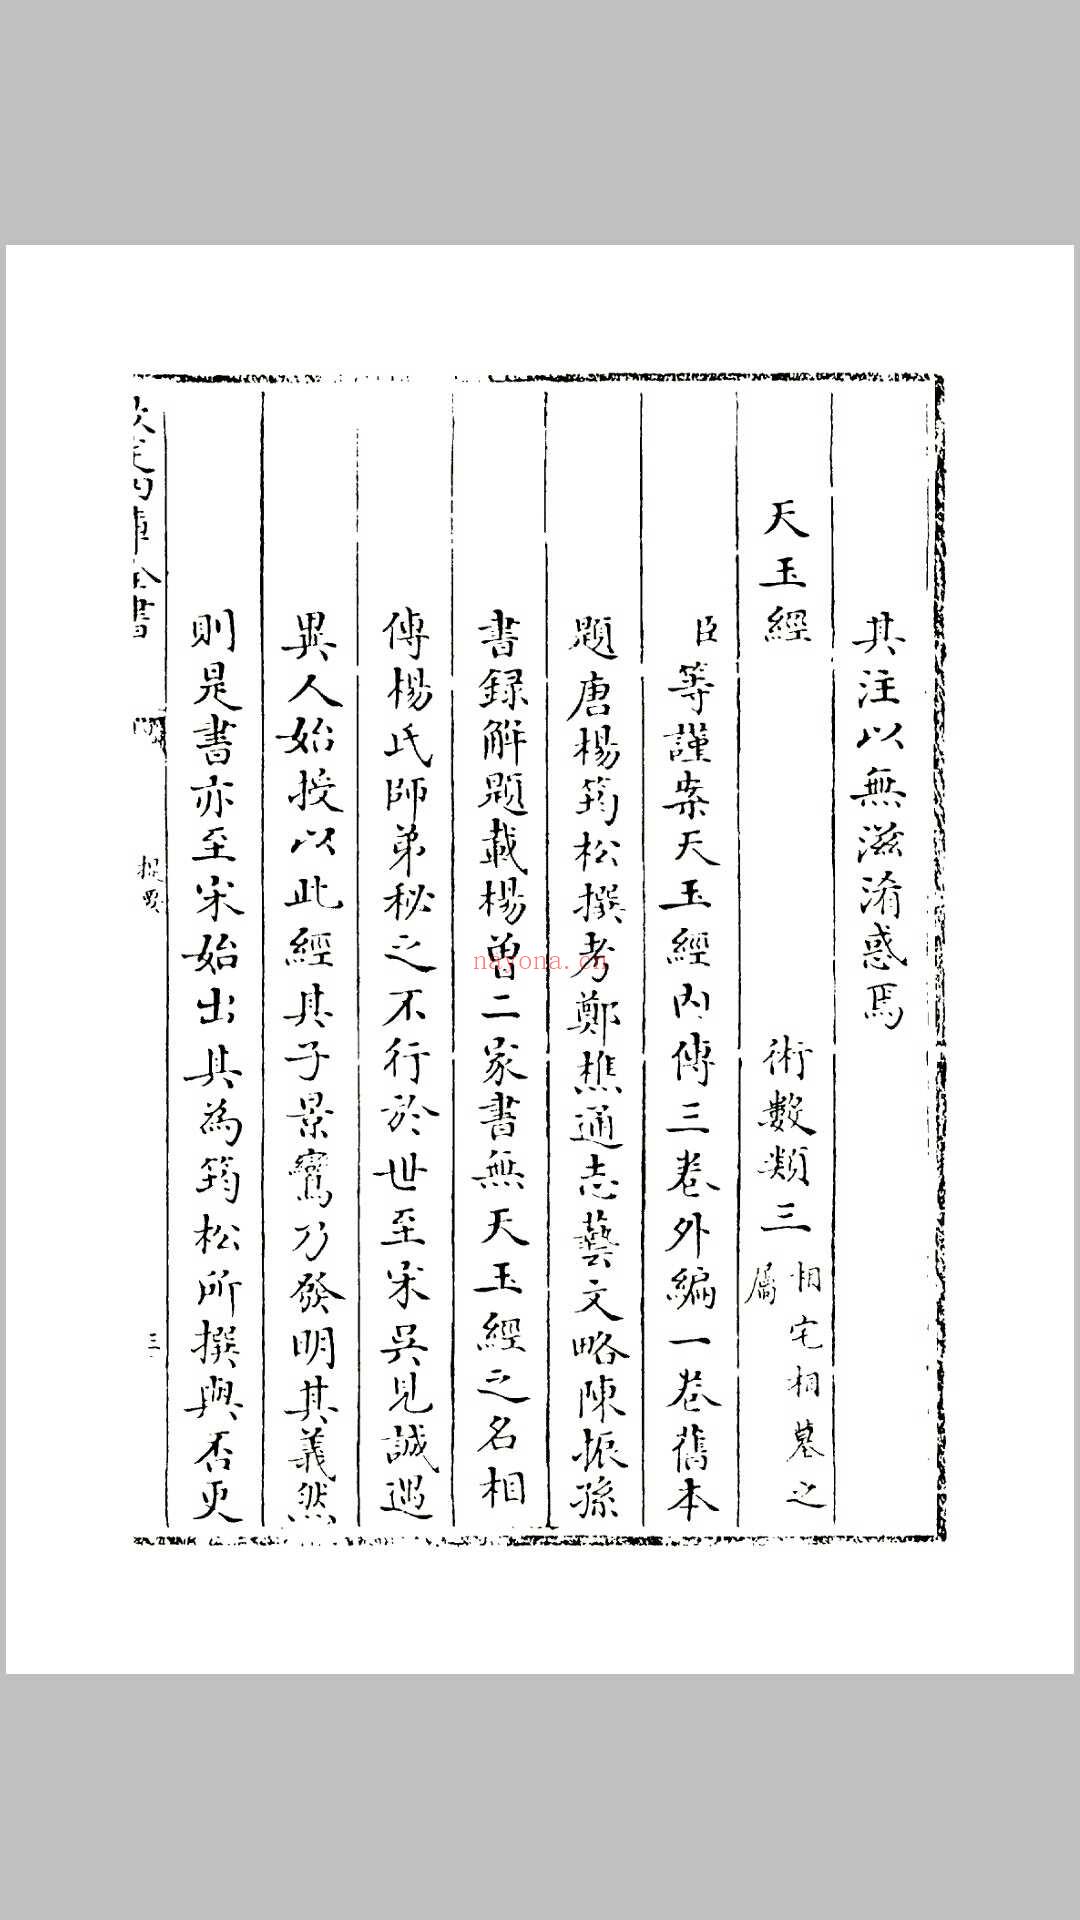 其注以無滋淆惑焉
天玉經 術數類三 相宅相墓之屬
臣等謹案天玉經內傳三卷外編一卷舊本
題唐楊筠松撰考鄭樵通志藝文略陳振孫
書録解題載楊曽二家書無天玉經之名相
傳楊氏師弟秘之不行於世至宋吳見誠遇
異人始授以此經其子景鸞乃發明其義然
則是書亦至宋始出其為筠松所撰與否更
欽定四庫全書
提要
三
nayona.cn